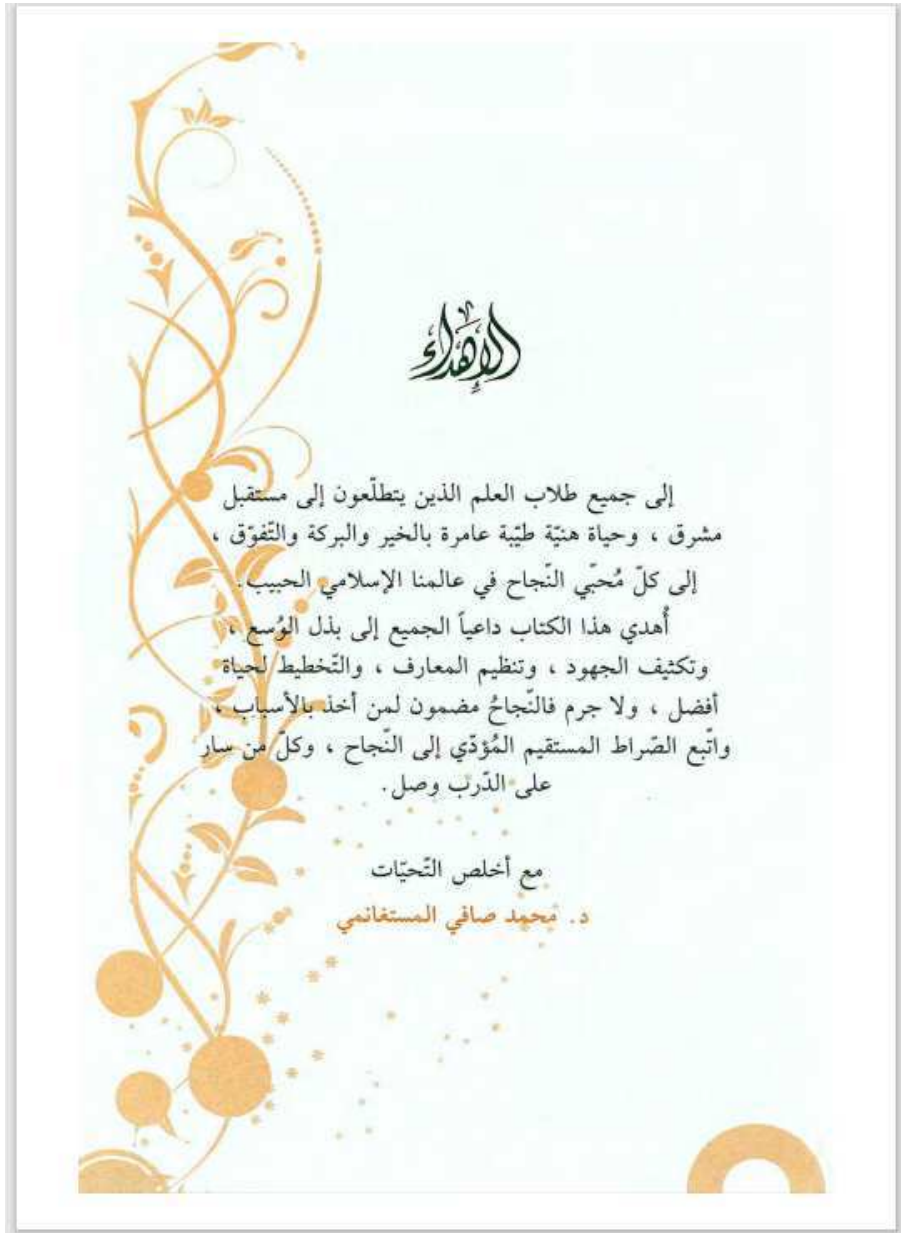 الإهداء
إلى جميع طلاب العلم الذين يتطلّعون إلى مستقبل
مشرق ، وحياة هنيّة طيّبة عامرة بالخير والبركة والتّفوّق ،
إلى كلّ مُحبّي النّجاح في عالمنا الإسلامي الحبيب.
أُهدي هذا الكتاب داعياً الجميع إلى بذل الوُسع ،
وتكثيف الجهود ، وتنظيم المعارف ، والتّخطيط لحياة
أفضل ، ولا جرم فالنّجاحُ مضمون لمن أخذ بالأسباب ،
واتّبع الصّراط المستقيم المُؤدّي إلى النّجاح ، وكلّ من سار
على الدّرب وصل.
مع أخلص التّحيّات
د. محمد صافي المستغانمي